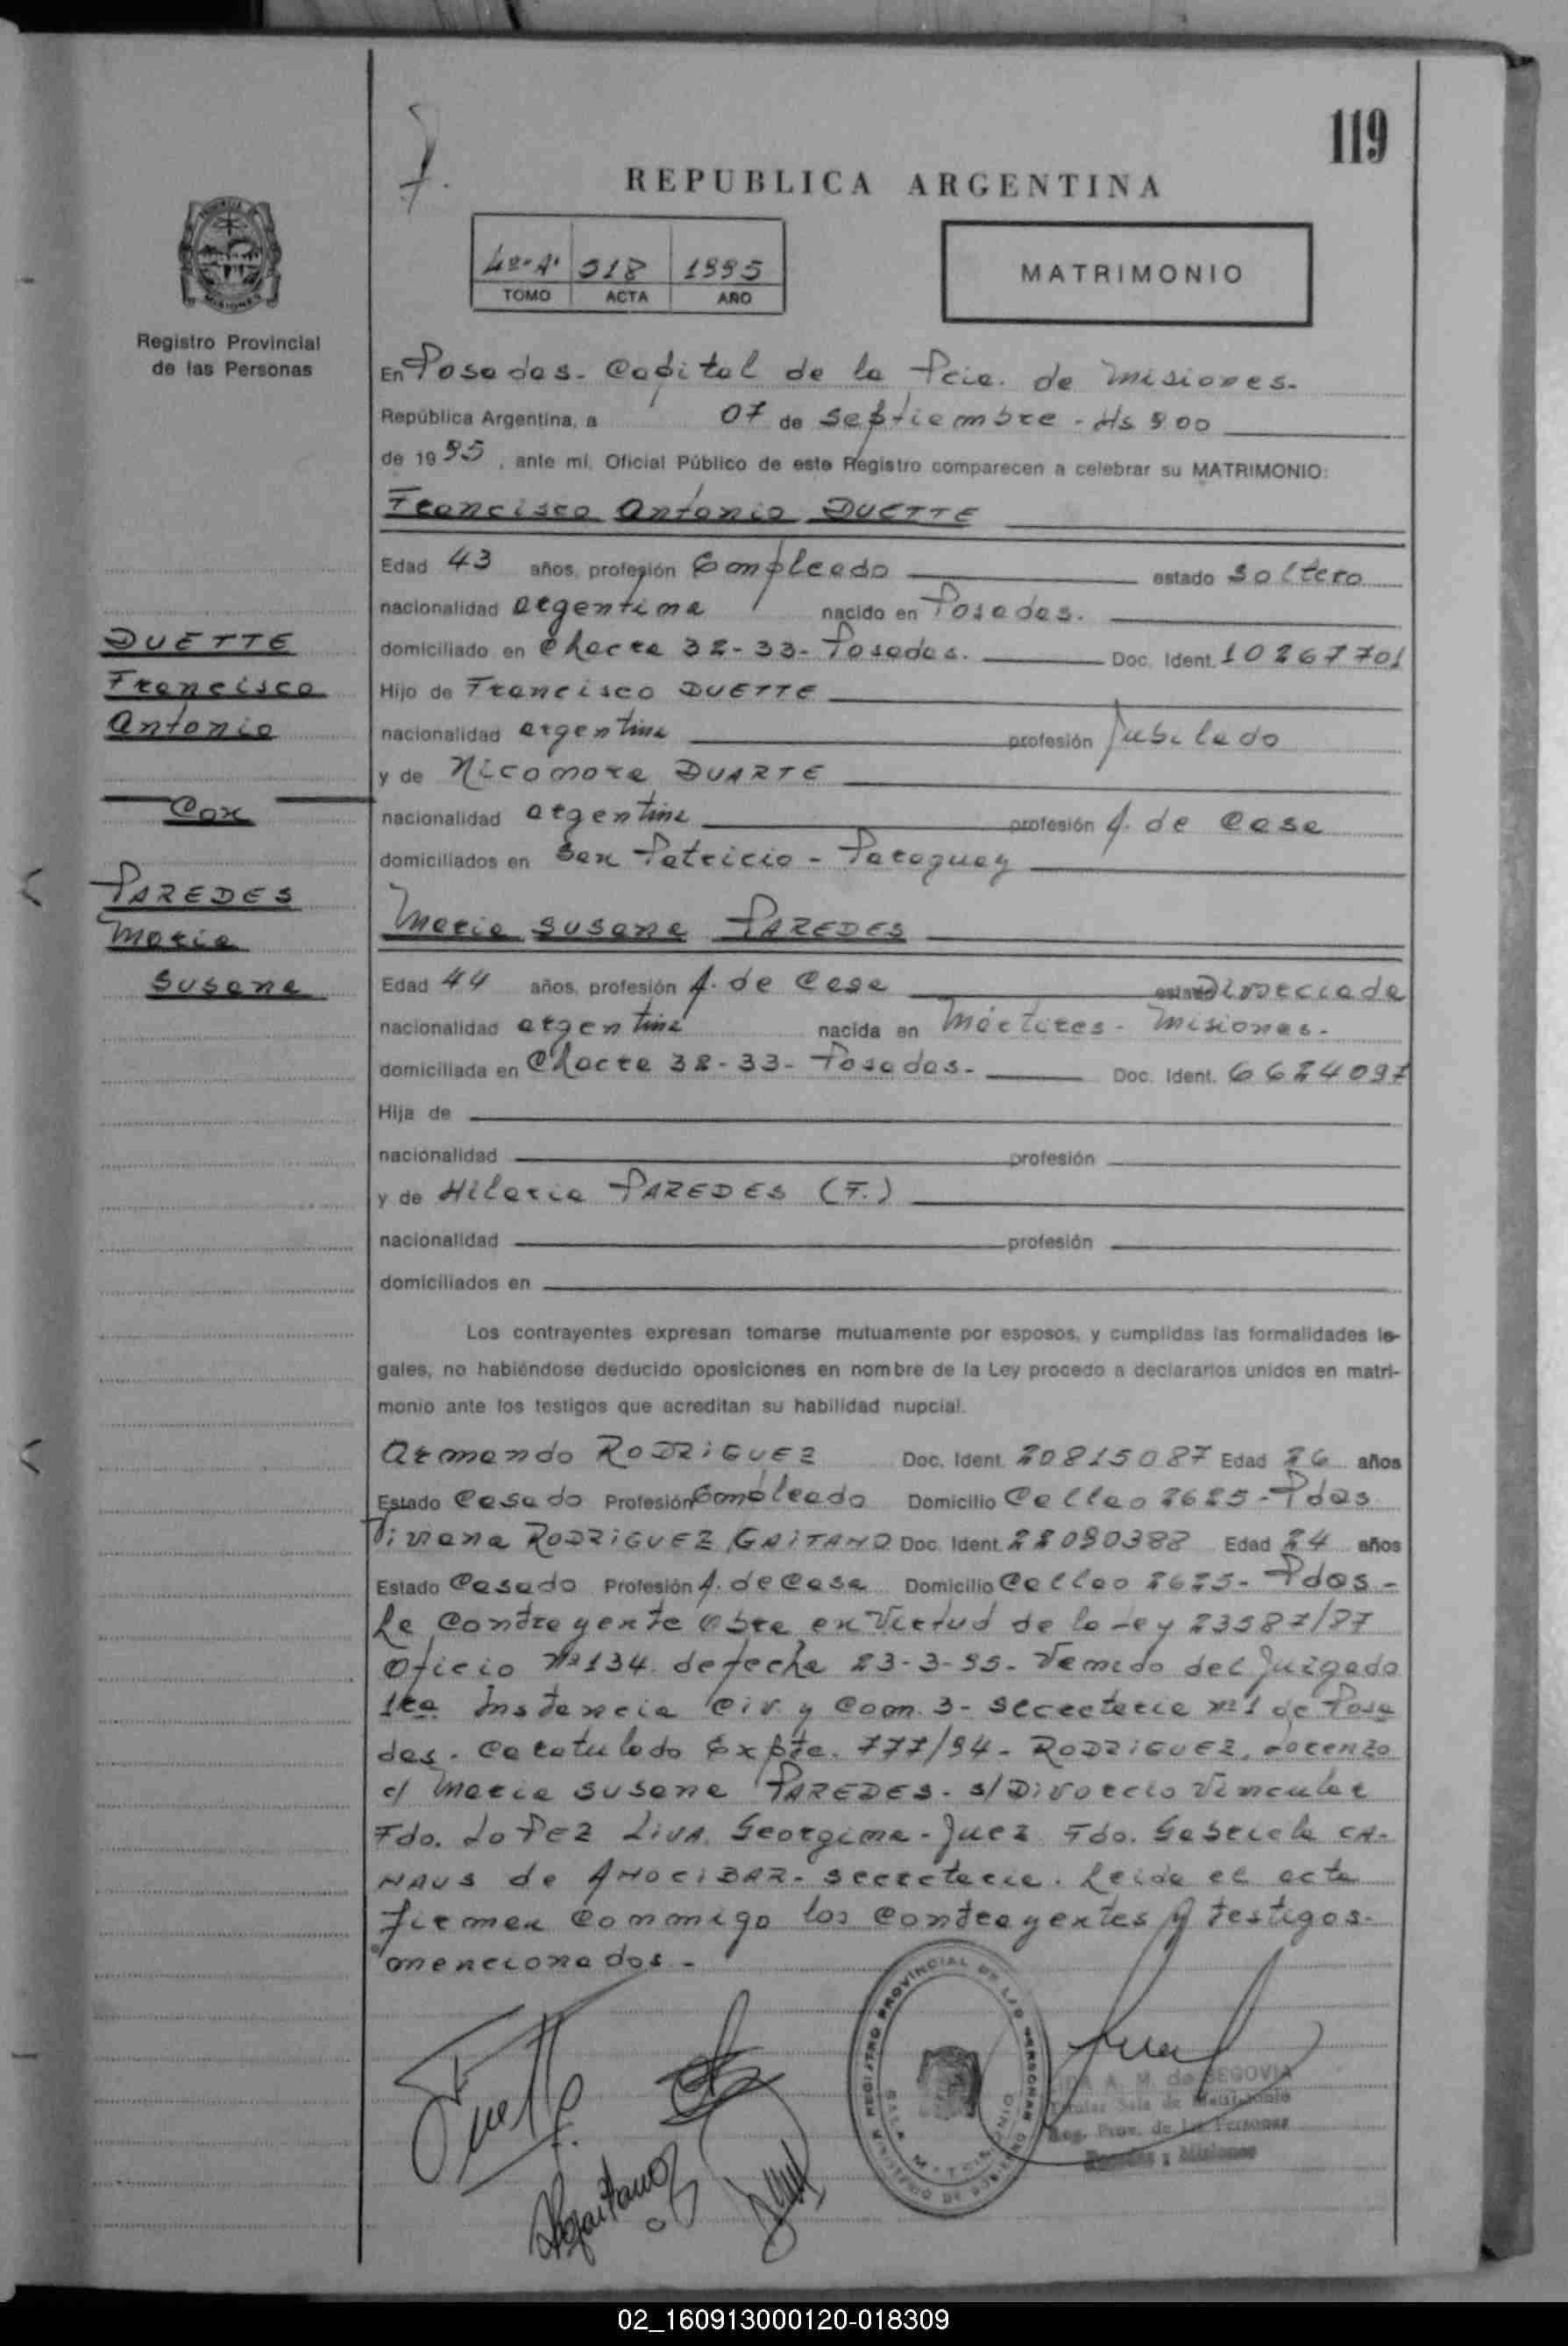 119
REPUBLICA ARGENTINA
4º-A' 518 1995
TOMO ACTA AÑO
MATRIMONIO
Registro Provincial
de las Personas
En Posadas - Capital de la Pcia. de Misiones.
República Argentina, a 07 de Septiembre - Hs 9.00
de 1995, ante mí, Oficial Público de este Registro comparecen a celebrar su MATRIMONIO:
Francisco Antonio DUETTE
Edad 43 años, profesión Empleado estado Soltero
nacionalidad argentina nacido en Posadas.
domiciliado en Chacra 32-33- Posadas. Doc. Ident. 10267701
Hijo de Francisco DUETTE
nacionalidad argentina profesión Jubilado
y de Nicomora DUARTE
nacionalidad argentina profesión A. de Casa
domiciliados en San Patricio - Paraguay
DUETTE
Francisco
Antonio
Con
PAREDES
Maria
Susana
Maria Susana PAREDES
Edad 44 años, profesión A. de Casa estado Divorciada
nacionalidad argentina nacida en Mártires - Misiones -
domiciliada en Chacra 32-33- Posadas - Doc. Ident. 6624097
Hija de
nacionalidad profesión
y de Hilaria PAREDES (F.)
nacionalidad profesión
domiciliados en
Los contrayentes expresan tomarse mutuamente por esposos, y cumplidas las formalidades le-
gales, no habiéndose deducido oposiciones en nombre de la Ley procedo a declararlos unidos en matri-
monio ante los testigos que acreditan su habilidad nupcial.
Armando RODRIGUEZ Doc. Ident. 20815087 Edad 26 años
Estado Casado Profesión Empleado Domicilio Callao 2625 - Pdas
Viviana RODRIGUEZ GAITANO Doc. Ident. 22090388 Edad 24 años
Estado Casado Profesión A. de Casa Domicilio Callao 2625 - Pdas -
La Contrayente obra en Virtud de la Ley 23587/87
Oficio Nº 134 de fecha 23-3-95 - Venido del Juzgado
1ra Instancia Civ. y Com. 3 - Secretaria nº 1 de Posa
das. Caratulado Expte. 777/94 - RODRIGUEZ, Lorenzo
c/ Maria Susana PAREDES - s/ Divorcio Vincular
Fdo. LoPeZ LiVA, Georgina - Juez Fdo. Gabriela CA-
NAUS de ANOCIBAR - Secretaria. Leida el acta
firman conmigo los contrayentes y testigos -
mencionados -
REGISTRO PROVINCIAL DE LAS PERSONAS
MINISTERIO DE GOBIERNO
SALA MATRIMONIO
A. M. de SEGOVIA
Titular Sala de Matrimonio
Reg. Prov. de las Personas
Posadas - Misiones
02_160913000120-018309